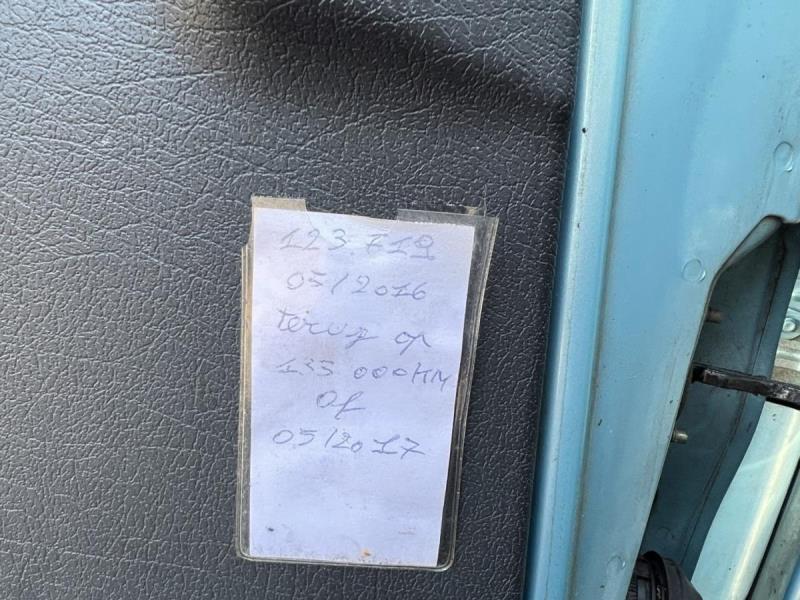 123.719
05/2016
terug op
135 000KM
Of
05/2017